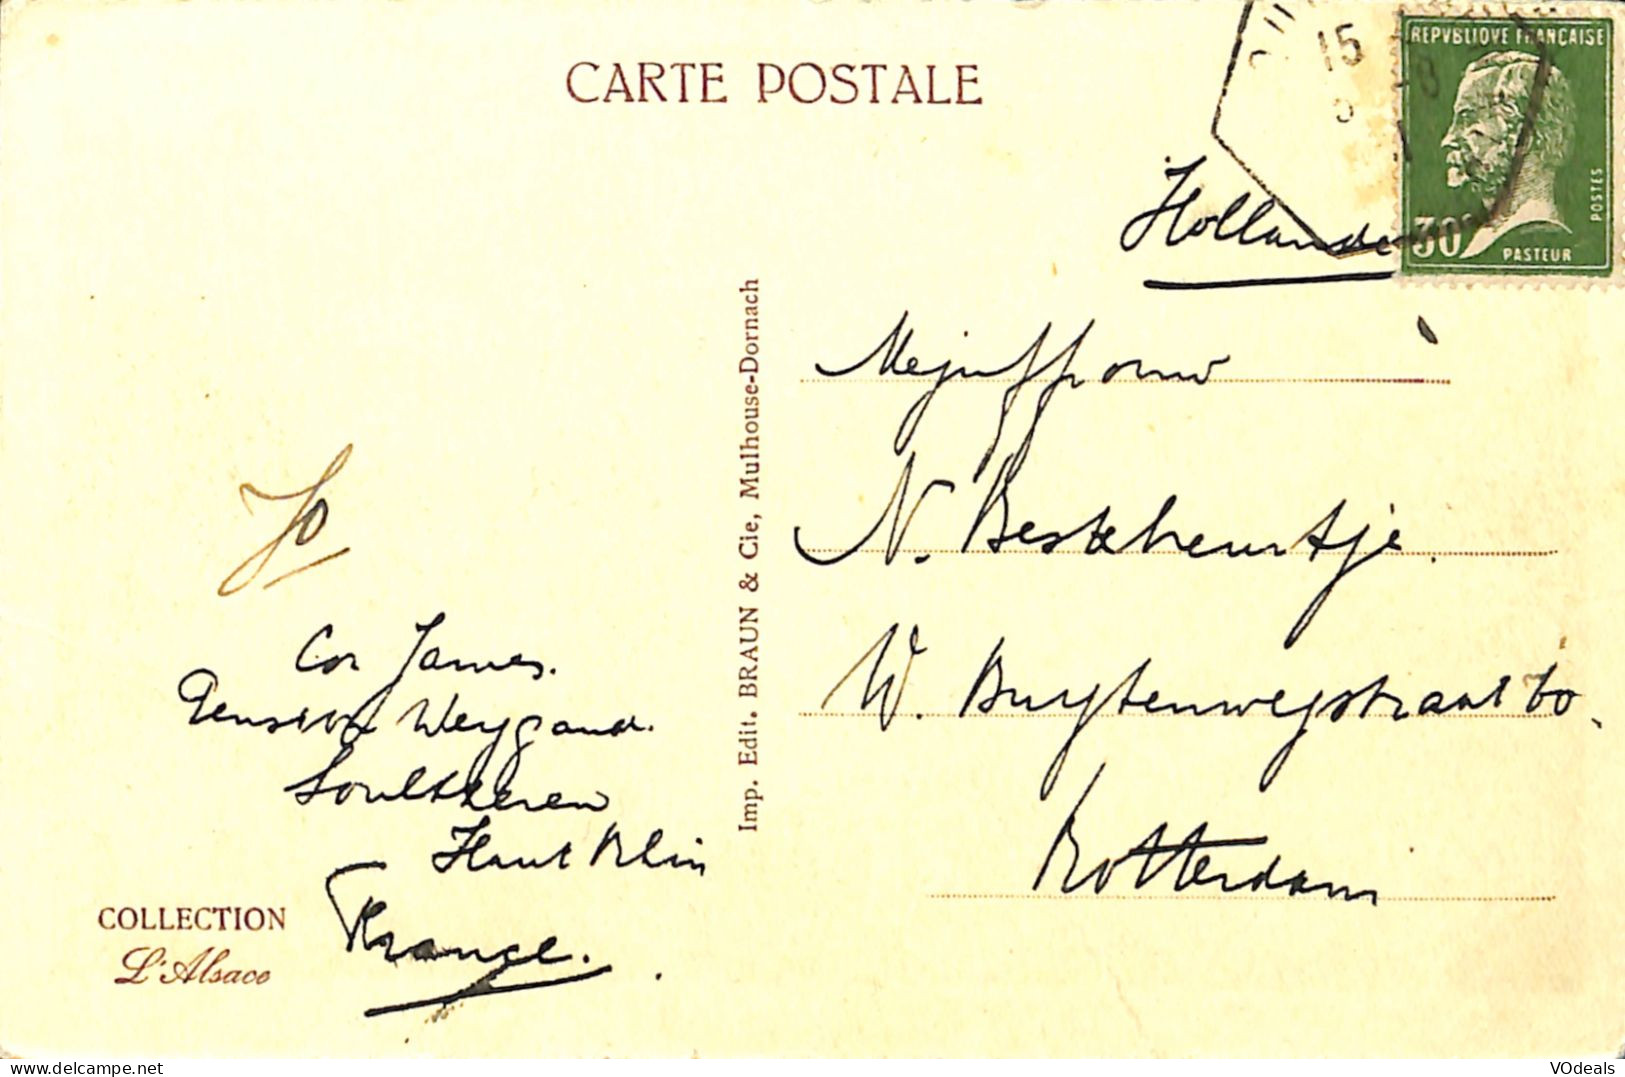 CARTE POSTALE
15
REPVBLIQVE FRANÇAISE
POSTES
30c
PASTEUR
Hollande
Mejuffrouw
N. Besteheurtje.
W. Buytenwegstraat 60.
Rotterdam
Imp. Edit. BRAUN & Cie, Mulhouse-Dornach
Jo
Cor James.
Pension Weygand.
Soultzeren
Haut Rhin
France.
COLLECTION
L'Alsace
VOdeals